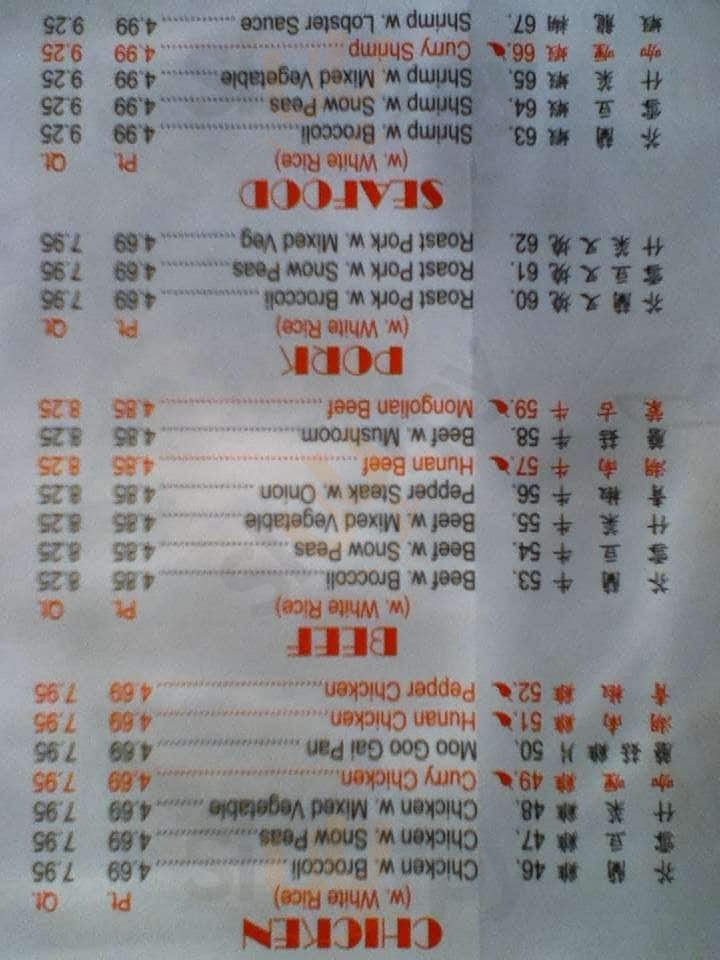 CHICKEN
(w. White Rice) Pt. Qt.
芥 蘭 雞 46. Chicken w. Broccoli 4.69 7.95
雪 豆 雞 47. Chicken w. Snow Peas 4.69 7.95
什 菜 雞 48. Chicken w. Mixed Vegetable 4.69 7.95
咖 喱 雞 49. Curry Chicken 4.69 7.95
蘑 菇 雞 片 50. Moo Goo Gai Pan 4.69 7.95
湖 南 雞 51. Hunan Chicken 4.69 7.95
青 椒 雞 52. Pepper Chicken 4.69 7.95
BEEF
(w. White Rice) Pt. Qt.
芥 蘭 牛 53. Beef w. Broccoli 4.85 8.25
雪 豆 牛 54. Beef w. Snow Peas 4.85 8.25
什 菜 牛 55. Beef w. Mixed Vegetable 4.85 8.25
青 椒 牛 56. Pepper Steak w. Onion 4.85 8.25
湖 南 牛 57. Hunan Beef 4.85 8.25
蘑 菇 牛 58. Beef w. Mushroom 4.85 8.25
蒙 古 牛 59. Mongolian Beef 4.85 8.25
PORK
(w. White Rice) Pt. Qt.
芥 蘭 叉 燒 60. Roast Pork w. Broccoli 4.69 7.95
雪 豆 叉 燒 61. Roast Pork w. Snow Peas 4.69 7.95
什 菜 叉 燒 62. Roast Pork w. Mixed Veg 4.69 7.95
SEAFOOD
(w. White Rice) Pt. Qt.
芥 蘭 蝦 63. Shrimp w. Broccoli 4.99 9.25
雪 豆 蝦 64. Shrimp w. Snow Peas 4.99 9.25
什 菜 蝦 65. Shrimp w. Mixed Vegetable 4.99 9.25
咖 喱 蝦 66. Curry Shrimp 4.99 9.25
蝦 龍 糊 67. Shrimp w. Lobster Sauce 4.99 9.25